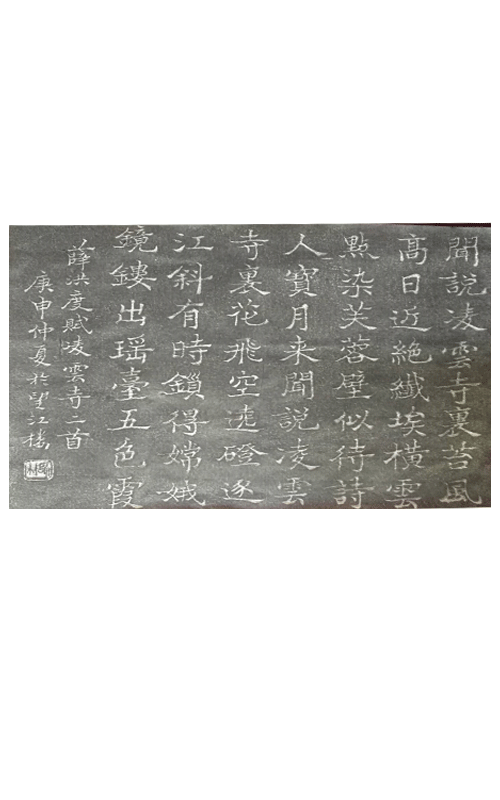 聞說凌雲寺裏苔風
高日近絶纖埃橫雲
點染芙蓉壁似待詩
人寶月来聞說凌雲
寺裏花飛空遶磴逐
江斜有時鎖得嫦娥
鏡鏤出瑶臺五色霞
薛洪度賦凌雲寺二首
庚申仲夏於望江樓